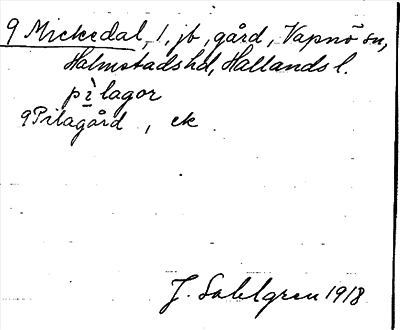 9 Mickedal, 1, jb, gård, Vapnö sn,
Halmstads hd, Hallands l.
pìlagor
9 Pilagård, ek
J. Sahlgren 1918